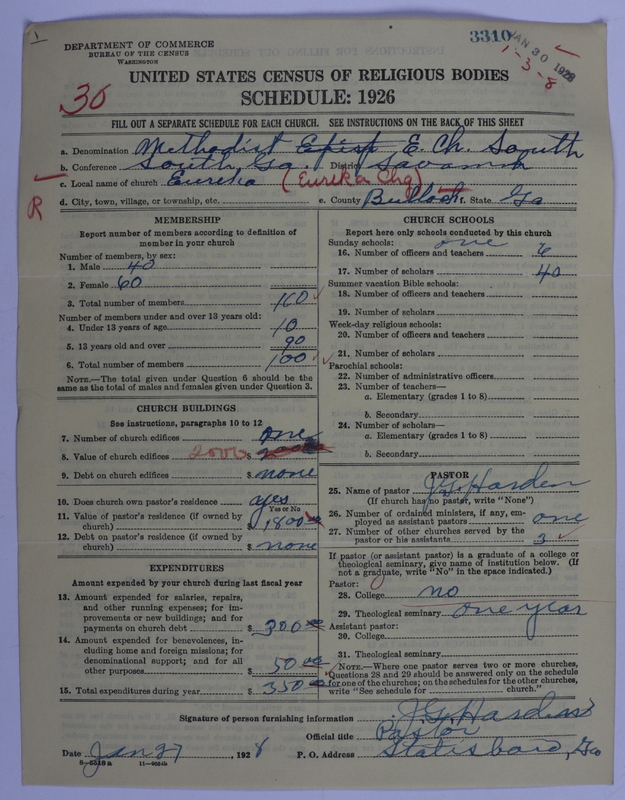 1
DEPARTMENT OF COMMERCE
BUREAU OF THE CENSUS
WASHINGTON
3310
JAN 30 1928
1-3-8
UNITED STATES CENSUS OF RELIGIOUS BODIES
SCHEDULE: 1926
30
FILL OUT A SEPARATE SCHEDULE FOR EACH CHURCH. SEE INSTRUCTIONS ON THE BACK OF THIS SHEET
a. Denomination Methodist Episp E. Ch. South
b. Conference South Ga. District Savannah
c. Local name of church Eureka (Eureka Chg)
R
d. City, town, village, or township, etc. e. County Bulloch f. State Ga
MEMBERSHIP
Report number of members according to definition of
member in your church
Number of members, by sex:
1. Male 40
2. Female 60
3. Total number of members 100
Number of members under and over 13 years old:
4. Under 13 years of age 10
5. 13 years old and over 90
6. Total number of members 100
NOTE.—The total given under Question 6 should be
same as the total of males and females given under Question 3.
CHURCH BUILDINGS
See instructions, paragraphs 10 to 12
7. Number of church edifices one
8. Value of church edifices 2000 $
9. Debt on church edifices $ none
10. Does church own pastor's residence yes
Yes or No
11. Value of pastor's residence (if owned by
church) $ 1800 00
12. Debt on pastor's residence (if owned by
church) $ none
EXPENDITURES
Amount expended by your church during last fiscal year
13. Amount expended for salaries, repairs,
and other running expenses; for im-
provements or new buildings; and for
payments on church debt $ 300 00
14. Amount expended for benevolences, in-
cluding home and foreign missions; for
denominational support; and for all
other purposes $ 50 00
15. Total expenditures during year $ 350 00
CHURCH SCHOOLS
Report here only schools conducted by this church
Sunday schools: one
16. Number of officers and teachers 6
17. Number of scholars 40
Summer vacation Bible schools:
18. Number of officers and teachers
19. Number of scholars
Week-day religious schools:
20. Number of officers and teachers
21. Number of scholars
Parochial schools:
22. Number of administrative officers
23. Number of teachers—
a. Elementary (grades 1 to 8)
b. Secondary
24. Number of scholars—
a. Elementary (grades 1 to 8)
b. Secondary
PASTOR
25. Name of pastor J. G. Harden
(If church has no pastor, write "None")
26. Number of ordained ministers, if any, em-
ployed as assistant pastors one
27. Number of other churches served by the
pastor or his assistants 3
If pastor (or assistant pastor) is a graduate of a college or
theological seminary, give name of institution below. (If
not a graduate, write "No" in the space indicated.)
Pastor:
28. College no
29. Theological seminary one year
Assistant pastor:
30. College
31. Theological seminary
NOTE.—Where one pastor serves two or more churches,
Questions 28 and 29 should be answered only on the schedule
for one of the churches; on the schedules for the other churches,
write "See schedule for church."
Signature of person furnishing information J. G. Harden
Official title Pastor
Date Jan 27, 1928 P. O. Address Statesboro, Ga
8-5318a 11-9054b